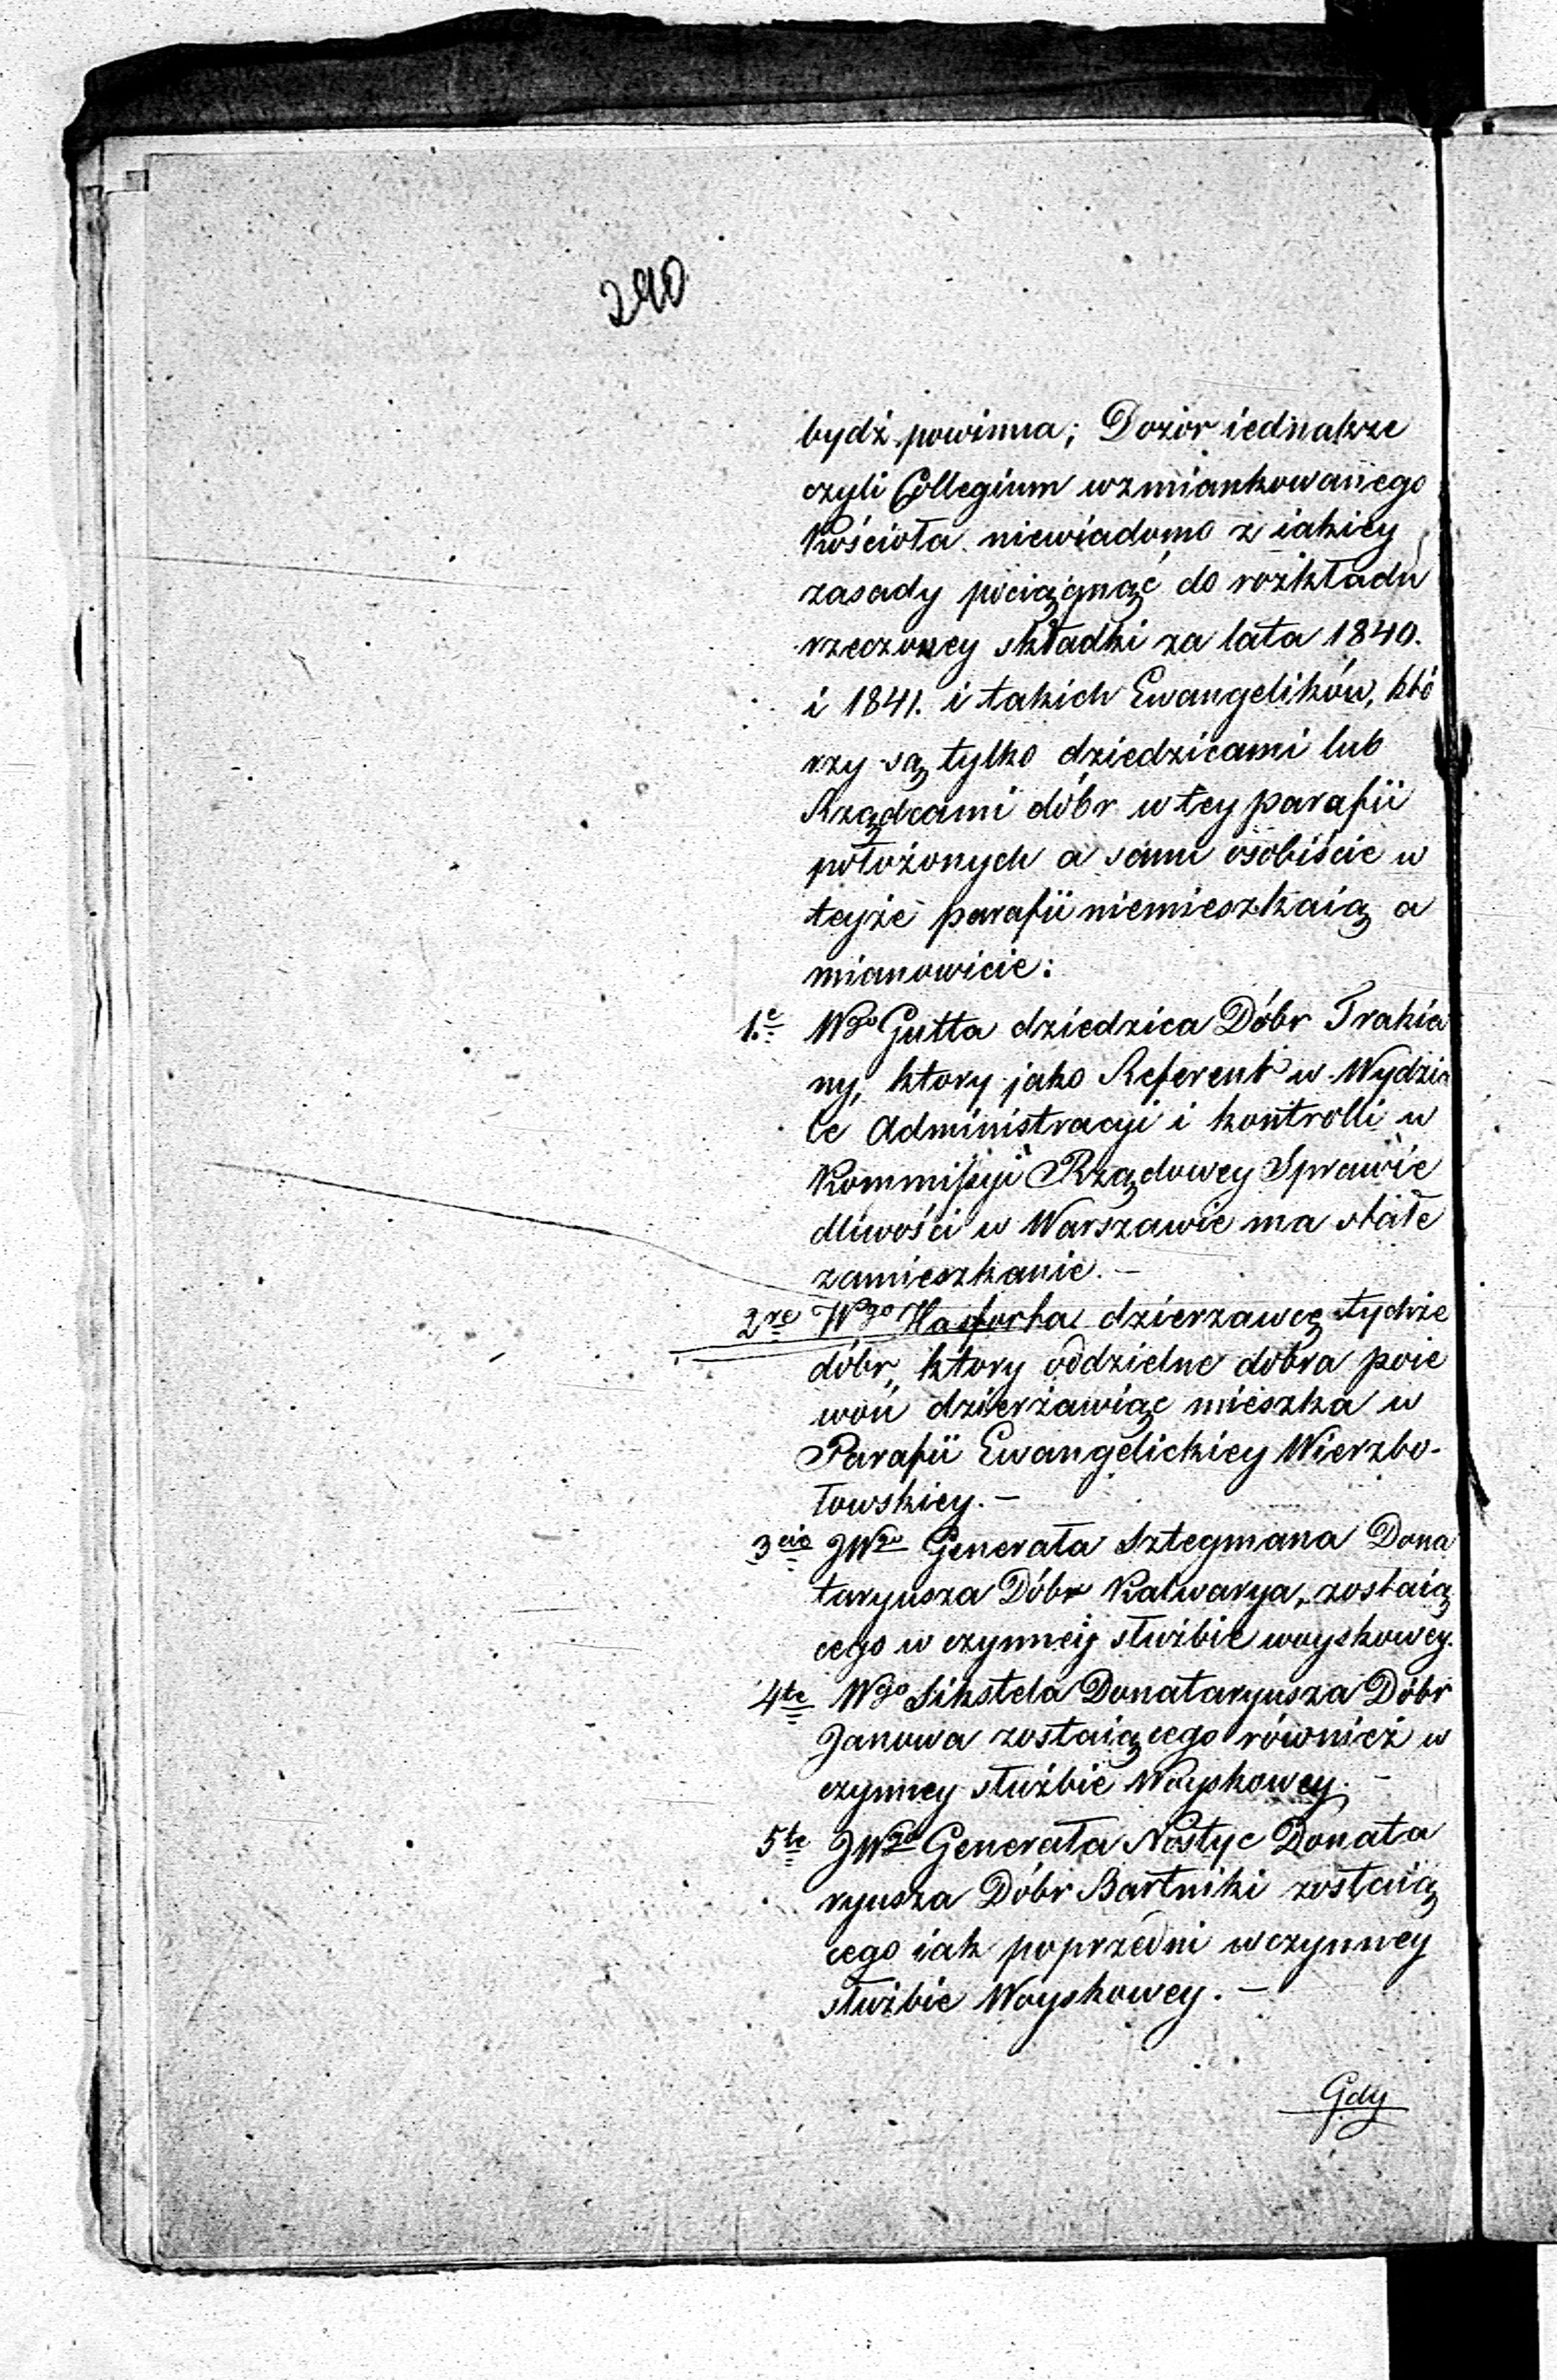 290
bydź powinna; Dozór iednakże
czyli Collegium wzmiankowanego
Kościoła niewiadomo z iakiey
zasady pociągnąć do rozkładu
rzeczoney składki za lata 1840.
i 1841. i takich Ewangelików, któ
rzy są tylko dziedzicami lub
Rządcami dóbr w tey parafii
położonych a sami osobiście w
teyże parafii niemieszkaią a
mianowicie:
1.e Wgo Gutta dziedzica Dóbr Trakia
ny, ktory jako Referent w Wydzia
le Administracyi i kontrolli w
Kommissyi Rządowey Sprawie
dliwości w Warszawie ma stałe
zamieszkanie. —
2re Wgo dzierzawcę tychże
dóbr, ktory oddzielne dobra poie
woń dzierżawiąc mieszka w
Parafii Ewangelickiey Wierzbo-
łowskiey. —
3cie JWgo Generała Sztegmana Dona
taryusza Dóbr Kalwarya, zostaią
cego w czynney służbie woyskowey.
4te Wgo Sikstela Donataryusza Dóbr
Janowa zostaiącego również w
czynney służbie Woyskowey. —
5te JWgo Generała Nostyc Donata
ryusza Dóbr Bartniki zostaią
cego iak poprzedni w czynney
służbie Woyskowey. —
Gdy